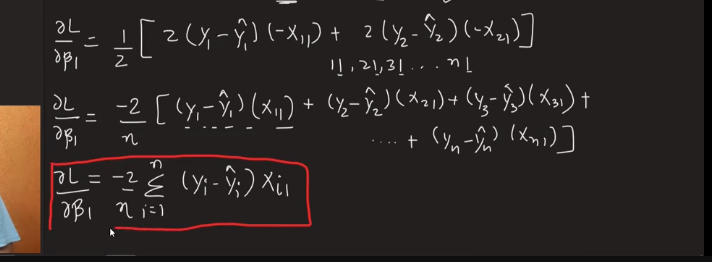 ∂L/∂β₁ = 1/2 [ 2 (y₁ - ŷ₁) (-x₁₁) + 2 (y₂ - ŷ₂) (-x₂₁) ]
11, 21, 31 ... n1
∂L/∂β₁ = -2/n [ (y₁ - ŷ₁) (x₁₁) + (y₂ - ŷ₂) (x₂₁) + (y₃ - ŷ₃) (x₃₁) +
.... + (yₙ - ŷₙ) (xₙ₁) ]
∂L/∂β₁ = -2/n Σᵢ₌₁ⁿ (yᵢ - ŷᵢ) xᵢ₁